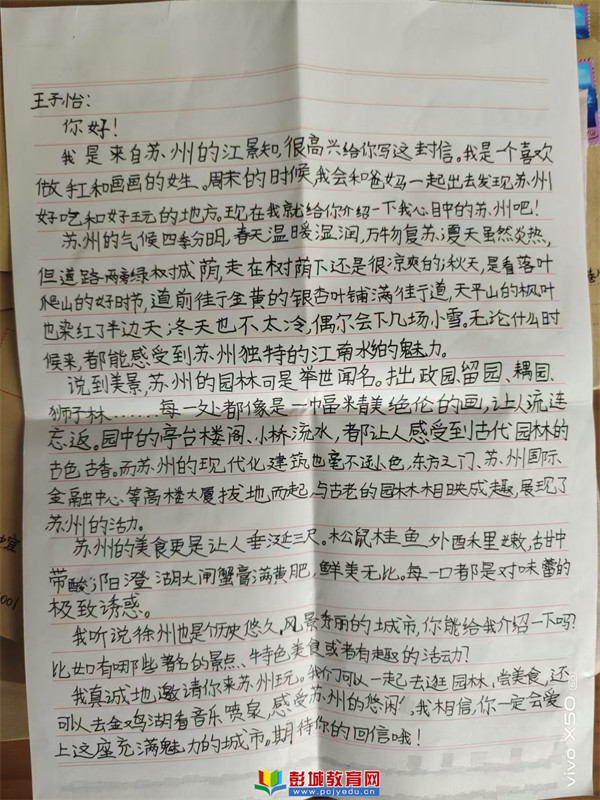 王子怡：
你好！
我是来自苏州的江景知，很高兴给你写这封信。我是一个喜欢
做手工和画画的女生。周末的时候，我会和爸妈一起出去发现苏州
好吃和好玩的地方。现在我就给你介绍一下我心目中的苏州吧！
苏州的气候四季分明，春天温暖湿润，万物复苏；夏天虽然炎热，
但道路两旁绿树成荫，走在树荫下还是很凉爽的；秋天，是看落叶
爬山的好时节，道前街金黄的银杏叶铺满街道，天平山的枫叶
也染红了半边天；冬天也不太冷，偶尔会下几场小雪。无论什么时
候来，都能感受到苏州独特的江南水乡的魅力。
说到美景，苏州的园林可是举世闻名。拙政园、留园、耦园、
狮子林……每一处都像是一幅精美绝伦的画，让人流连
忘返。园中的亭台楼阁、小桥流水，都让人感受到古代园林的
古色古香。而苏州的现代化建筑也毫不逊色，东方之门、苏州国际
金融中心等高楼大厦拔地而起，与古老的园林相映成趣，展现了
苏州的活力。
苏州的美食更是让人垂涎三尺。松鼠桂鱼外酥里嫩，甜中
带酸；阳澄湖大闸蟹膏满黄肥，鲜美无比。每一口都是对味蕾的
极致诱惑。
我听说徐州也是个历史悠久，风景秀丽的城市，你能给我介绍一下吗？
比如有哪些著名的景点、特色美食或者有趣的活动？
我真诚地邀请你来苏州玩。我们可以一起去逛园林，尝美食，还
可以去金鸡湖看音乐喷泉，感受苏州的悠闲，我相信，你一定会爱
上这座充满魅力的城市。期待你的回信哦！
vivo X50
彭城教育网
www.pcjyedu.cn